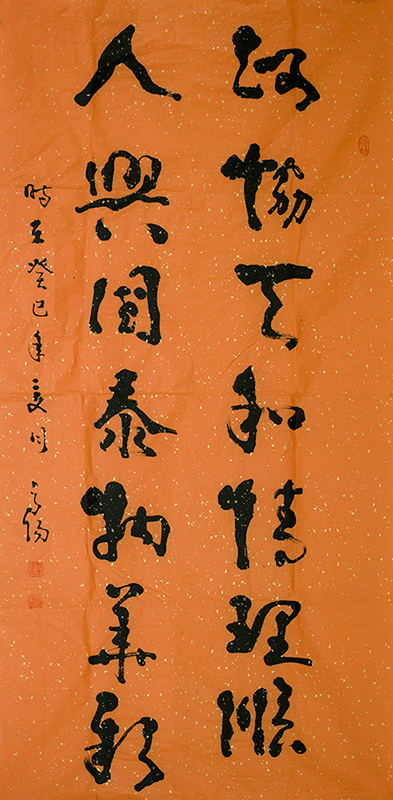 協天和情理順
人興國泰物華新
時在癸巳年夏月